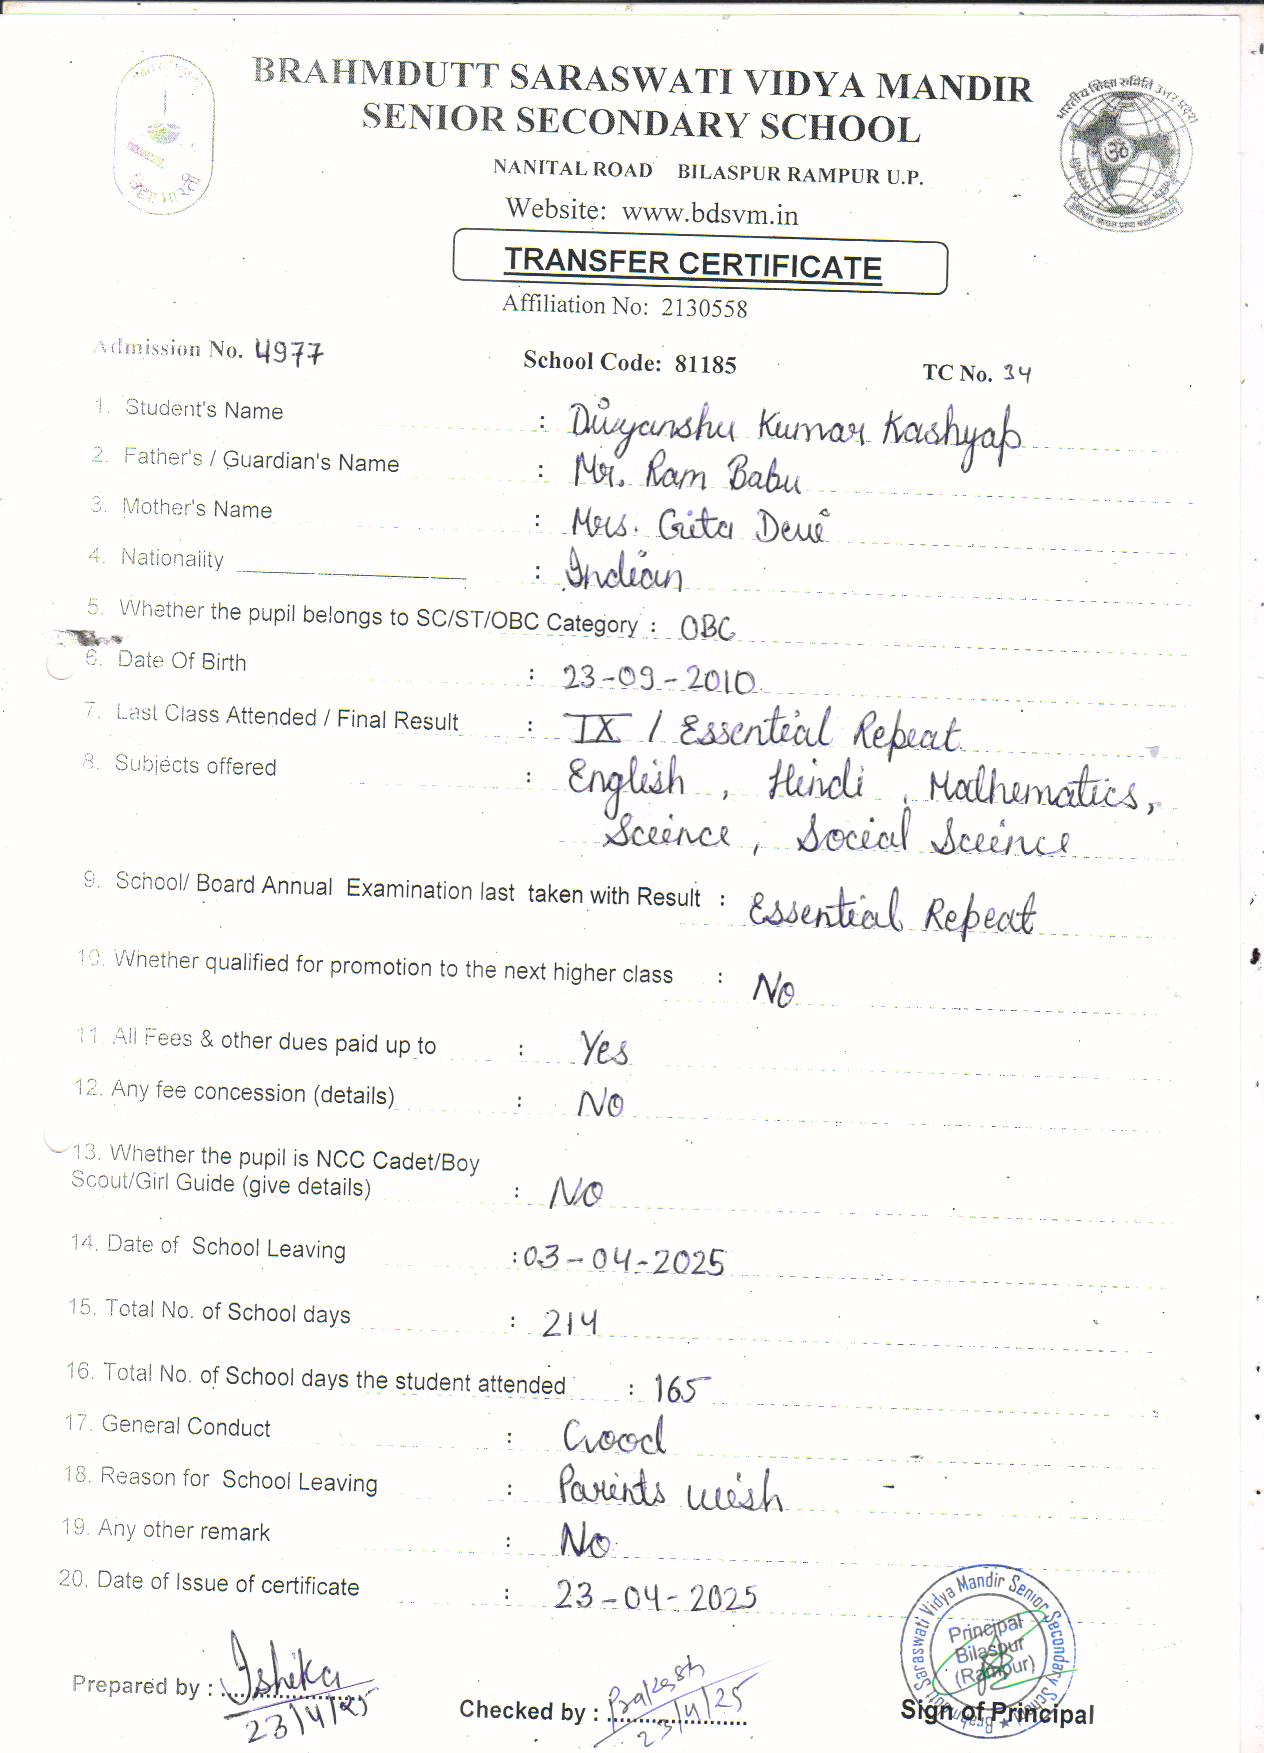 BRAHMDUTT SARASWATI VIDYA MANDIR
SENIOR SECONDARY SCHOOL
NANITAL ROAD BILASPUR RAMPUR U.P.
Website: www.bdsvm.in
भारतीय शिक्षा समिति उत्तर प्रदेश
TRANSFER CERTIFICATE
Affiliation No: 2130558
Admission No. 4977 School Code: 81185 TC No. 34
1. Student's Name : Divyanshu Kumar Kashyap
2. Father's / Guardian's Name : Mr. Ram Babu
3. Mother's Name : Mrs. Gita Devi
4. Nationality : Indian
5. Whether the pupil belongs to SC/ST/OBC Category : OBC
6. Date Of Birth : 23-09-2010
7. Last Class Attended / Final Result : IX / Essential Repeat
8. Subjects offered : English , Hindi , Mathematics,
Sceince , Social Sceince
9. School/ Board Annual Examination last taken with Result : Essential Repeat
10. Whether qualified for promotion to the next higher class : No
11. All Fees & other dues paid up to : Yes
12. Any fee concession (details) : No
13. Whether the pupil is NCC Cadet/Boy
Scout/Girl Guide (give details) : No
14. Date of School Leaving : 03-04-2025
15. Total No. of School days : 214
16. Total No. of School days the student attended : 165
17. General Conduct : Good
18. Reason for School Leaving : Parints wish
19. Any other remark : No
20. Date of Issue of certificate : 23-04-2025
Saraswati Vidya Mandir Senior Secondary School
Principal
Bilaspur
(Rampur)
Prepared by : Ishika
23/4/25
Checked by : Prakash
23/4/25
Sign of Principal